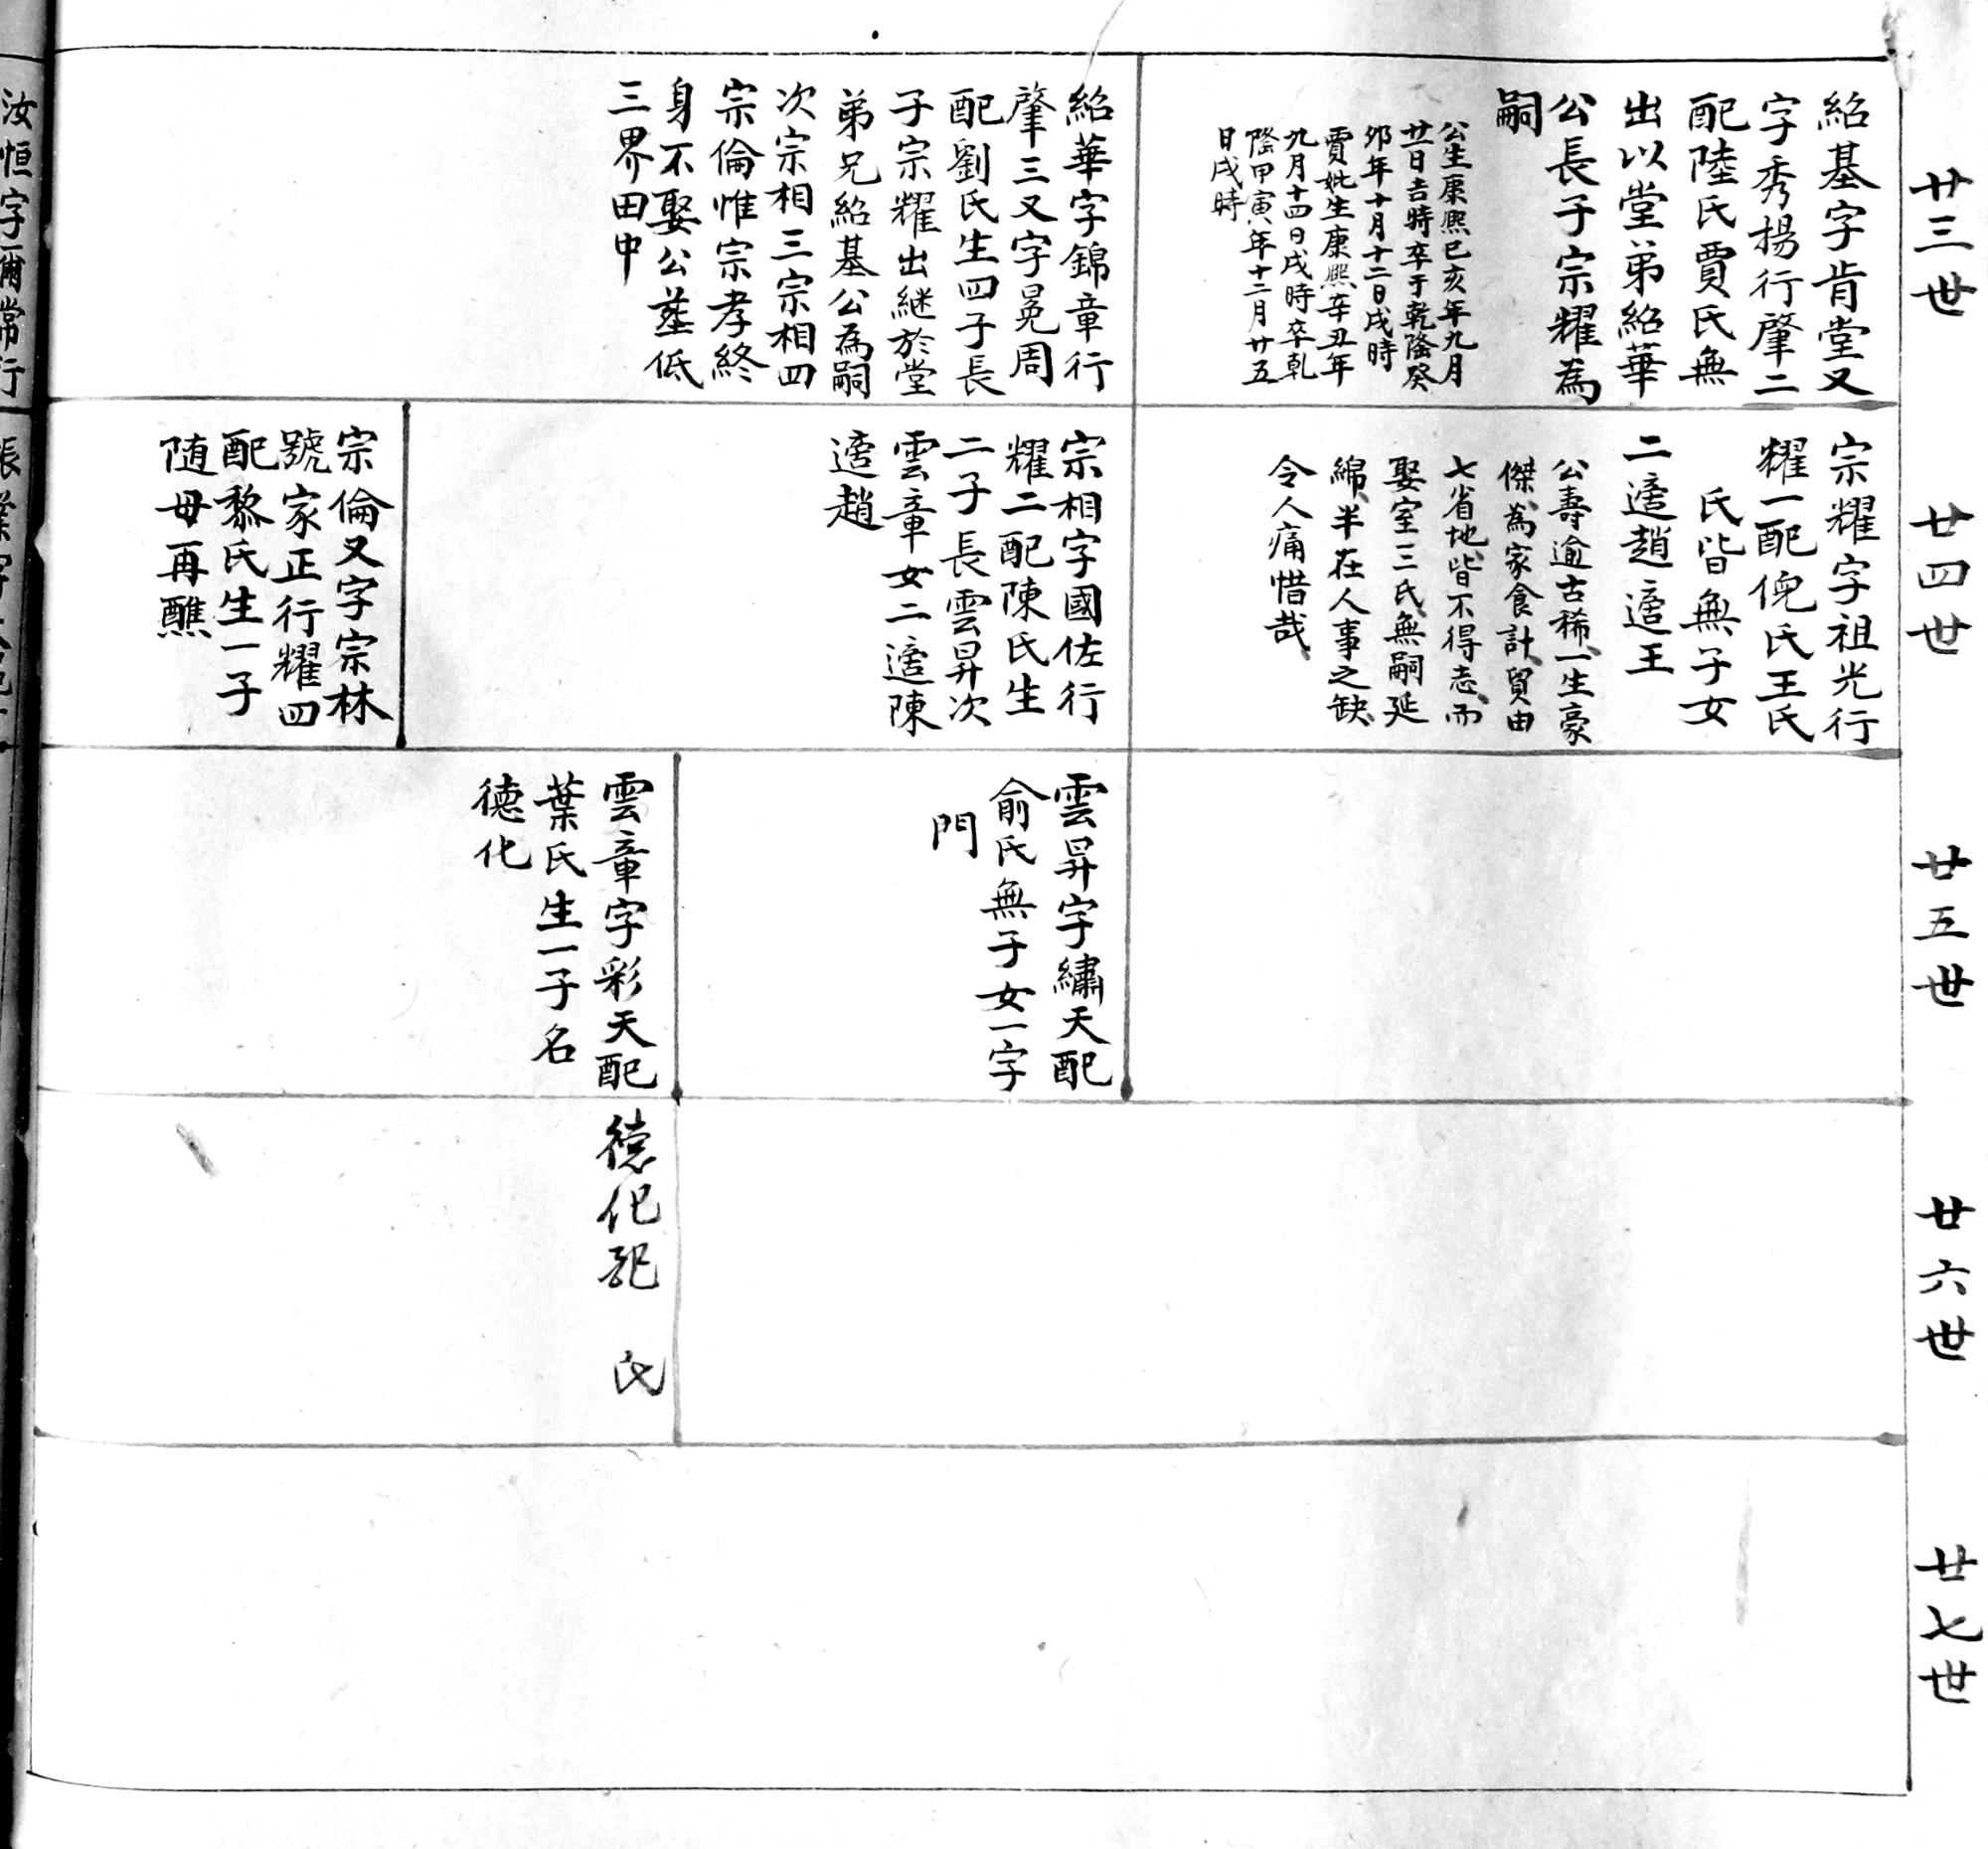 廿三世
紹基字肯堂又
字秀揚行肇二
配陸氏賈氏無
出以堂弟紹華
公長子宗耀為
嗣
公生康熙己亥年九月
廿日吉時卒于乾隆癸
卯年十月十二日戌時
賈妣生康熙辛丑年
九月十四日戌時卒乹
隆甲寅年十二月廿五
日戌時
紹華字錦章行
肇三又字晃周
配劉氏生四子長
子宗耀出継於堂
弟兄紹基公為嗣
次宗相三宗相四
宗倫惟宗孝終
身不娶公塟低
三界田中
廿四世
宗耀字祖光行
耀一配倪氏王氏
氏皆無子女
二適趙適王
公壽逾古稀、一生豪
傑、為家食計、貿由
七省地、皆不得志、而
娶室三氏、無嗣延
綿、半在人事之缺、
令人痛惜哉、
宗相字國佐行
耀二配陳氏生
二子長雲昇次
雲章女二適陳
適趙
宗倫又字宗林
號家正行耀四
配黎氏生一子
随母再醮
廿五世
雲昇字繡天配
俞氏無子女一字
門
雲章字彩天配
葉氏生一子名
德化
廿六世
德化配 氏
廿七世
汝恒字爾常行